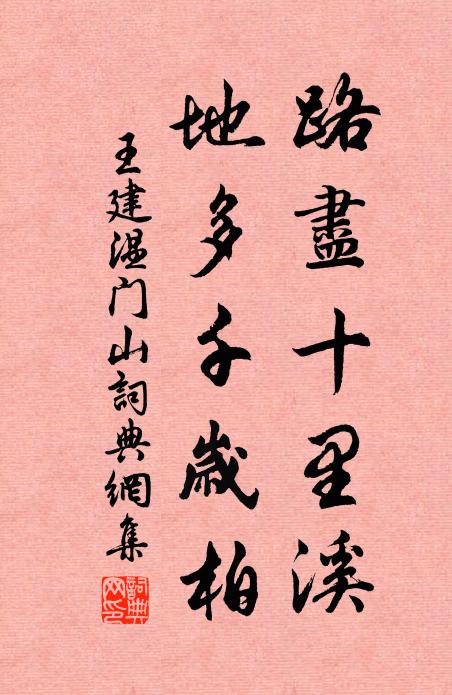 路盡十里溪
地多千歲柏
王建溫門山詞典網集
詞典網印